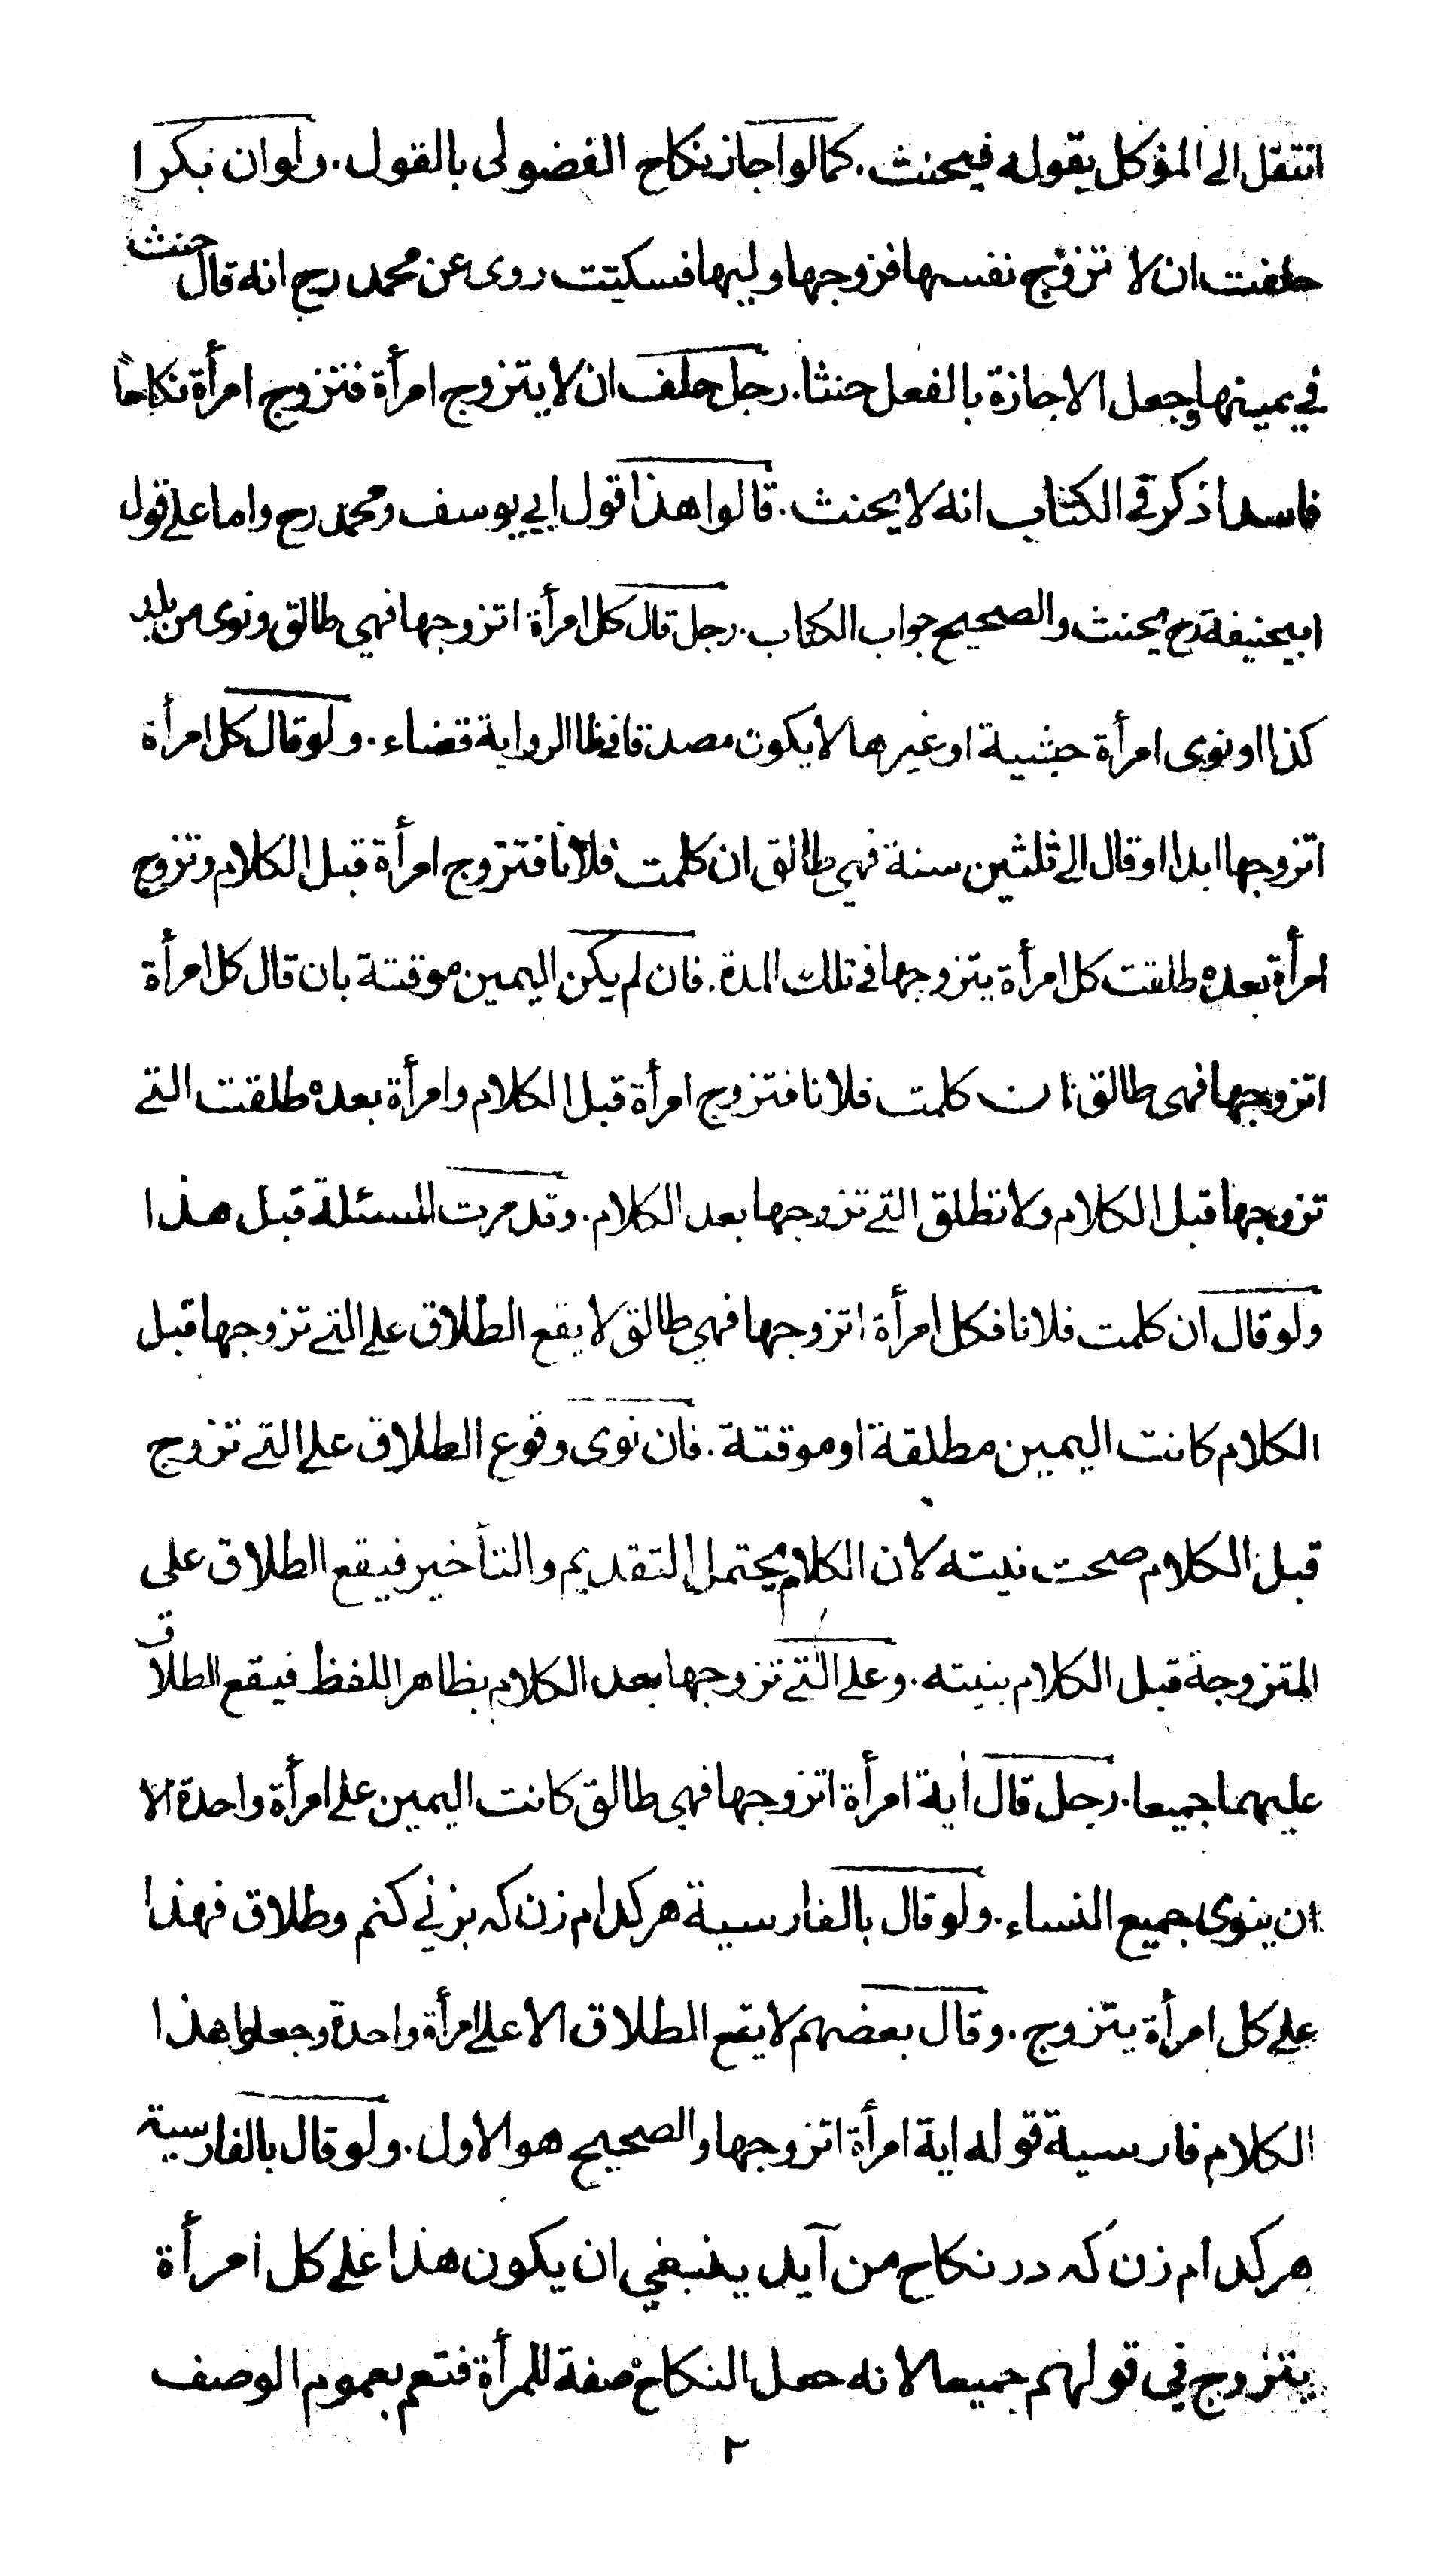 انتقل الى المؤكل بقوله فيحنث. كما لو اجاز نكاح الفضولى بالقول. ولو ان بكرا
حلفت ان لا تزوّج نفسها فزوجها وليها فسكتت روى عن محمد رح انه قال حنث
في يمينها وجعل الاجازة بالفعل حنثا. رجل حلف ان لا يتزوج امرأة فتزوج امرأة نكاحاً
فاسدا ذكر في الكتاب انه لا يحنث. قالوا هذا قول ابي يوسف ومحمد رح واما على قول
ابيحنيفة رح يحنث والصحيح جواب الكتاب. رجل قال كل امرأة اتزوجها فهي طالق ونوى من بلد
كذا او نوى امرأة حبشية او غيرها لا يكون مصدقا في ظا الرواية قضاء. ولو قال كل امرأة
اتزوجها ابدا او قال الى ثلثين سنة فهي طالق ان كلمت فلانا فتزوج امرأة قبل الكلام وتزوج
امرأة بعده طلقت كل امرأة يتزوجها في تلك المدة. فان لم يكن اليمين موقتة بان قال كل امرأة
اتزوجها فهى طالق ان كلمت فلانا فتزوج امرأة قبل الكلام وامرأة بعده طلقت التي
تزوجها قبل الكلام ولا تطلق التي تزوجها بعد الكلام. وقد مرت المسئلة قبل هذا
ولو قال ان كلمت فلانا فكل امرأة اتزوجها فهي طالق لا يقع الطلاق على التي تزوجها قبل
الكلام كانت اليمين مطلقة او موقتة. فان نوى وقوع الطلاق على التي تزوج
قبل الكلام صحت نيته لان الكلام يحتمل التقديم والتأخير فيقع الطلاق على
المتزوجة قبل الكلام بنيته. وعلى التي تزوجها بعد الكلام بظاهر اللفظ فيقع الطلاق
عليهما جميعا. رجل قال أية امرأة اتزوجها فهي طالق كانت اليمين على امرأة واحدة الا
ان ينوى جميع النساء. ولو قال بالفارسية هر كدام زن كه بزني كنم وطلاق فهذا
على كل امرأة يتزوج. وقال بعضهم لا يقع الطلاق الا على امرأة واحدة وجعلوا هذا
الكلام فارسية قوله اية امرأة اتزوجها والصحيح هو الاول. ولو قال بالفارسية
هر كدام زن كه در نكاح من آيد ينبغي ان يكون هذا على كل امرأة
يتزوج في قولهم جميعا لانه جعل النكاح صفة للمرأة فتعم بعموم الوصف
٢